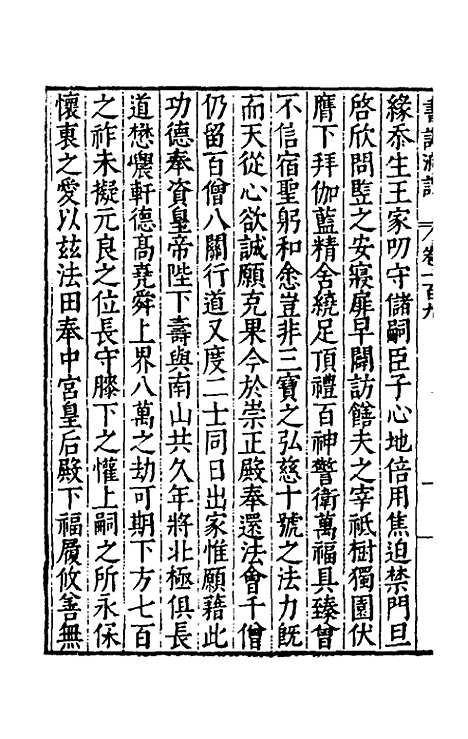 書記洞詮 卷一百九 一
緣忝生王家叨守儲嗣臣子心地倍用焦迫禁門旦
啓欣問豎之安寢扉早闢訪饍夫之宰祇樹獨園伏
膺下拜伽藍精舍繞足頂禮百神警衛萬福具臻曾
不信宿聖躬和悆豈非三寶之弘慈十號之法力旣
而天從心欲誠願克果今於崇正殿奉還法會千僧
仍留百僧八關行道又度二士同日出家惟願藉此
功德奉資皇帝陛下壽與南山共久年將北極俱長
道懋農軒德高堯舜上界八萬之劫可期下方七百
之祚未擬元良之位長守膝下之懽上嗣之所永保
懷衷之愛以玆法田奉中宮皇后殿下福履攸善無